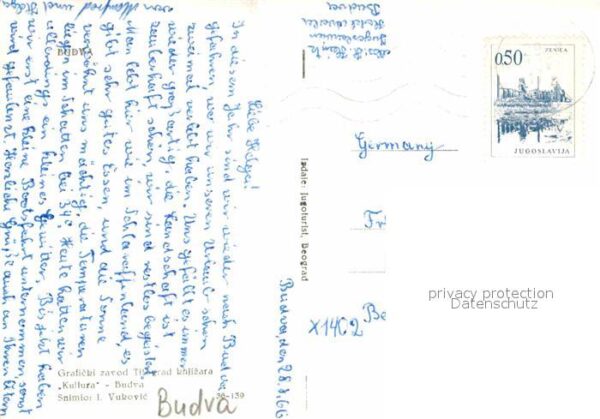 BUDVA
Liebe Helga!
In diesem Jahr sind wir wieder nach Budva
gefahren, wo wir unseren Urlaub schon
zweimal verlebt haben. Uns gefällt es immer
wieder großartig, die Landschaft ist
zauberhaft schön, wir sind restlos begeistert
Man lebt hier wie im Schlaraffenland, es
gibt sehr gutes Essen, und die Sonne
verwöhnt uns mächtig, die Temperaturen
liegen im Schatten bei 34°C. Heute hatten wir
allerdings ein kleines Gewitter. Bis jetzt haben
wir erst eine kleine Bootsfahrt unternommen, sonst
wird gefaulenzt. Herzliche Grüße auch an Ihren Eltern
von Manfred und
Jugoslavien
Budva
Budva, den 28.8.66
Germany
X1402
ZENICA
0.50
JUGOSLAVIJA
Izdaje: Jugoturist, Beograd
privacy protection
Datenschutz
Grafički zavod Titograd knjižara
„Kultura" - Budva
Snimio: I. Vuković
36-139
Budva